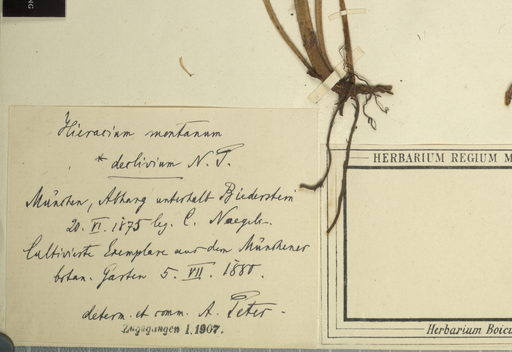 Hieracium montanum
* declivium N. P.
München, Abhang unterhalb Biederstein
20. VI. 1875 leg. C. Naegeli.
Cultivirte Exemplare aus dem Münchener
botan. Garten 5. VII. 1880.
determ. et comm. A. Peter.
Zugegangen 1.1907.
HERBARIUM REGIUM M
Herbarium Boicu